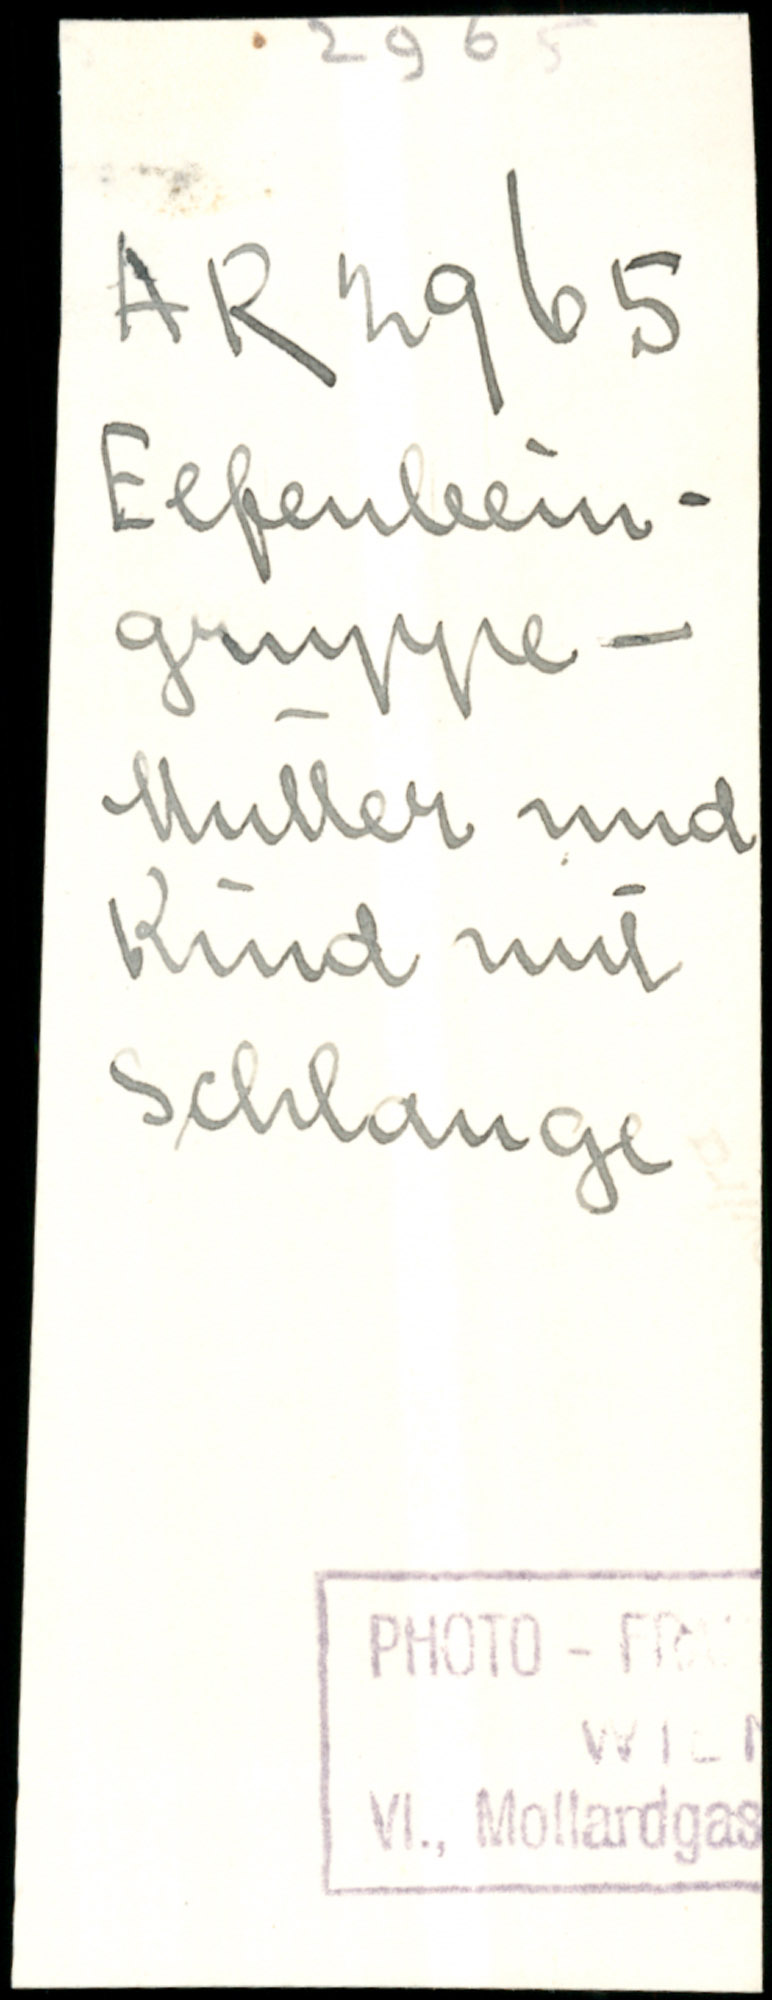 2965
AR 2965
Elfenbein-
gruppe —
Mutter und
Kind mit
Schlange
PHOTO -
WIEN
VI., Mollardgas